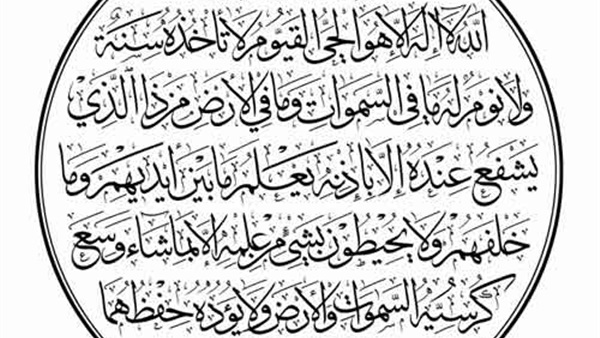 اللهُ لَا إِلَهَ إِلَّا هُوَ الْحَيُّ الْقَيُّومُ لَا تَأْخُذُهُ سِنَةٌ
وَلَا نَوْمٌ لَهُ مَا فِي السَّمَوَاتِ وَمَا فِي الْأَرْضِ مَنْ ذَا الَّذِي
يَشْفَعُ عِنْدَهُ إِلَّا بِإِذْنِهِ يَعْلَمُ مَا بَيْنَ أَيْدِيهِمْ وَمَا
خَلْفَهُمْ وَلَا يُحِيطُونَ بِشَيْءٍ مِنْ عِلْمِهِ إِلَّا بِمَا شَاءَ وَسِعَ
كُرْسِيُّهُ السَّمَوَاتِ وَالْأَرْضَ وَلَا يَؤُدُهُ حِفْظُهُمَا